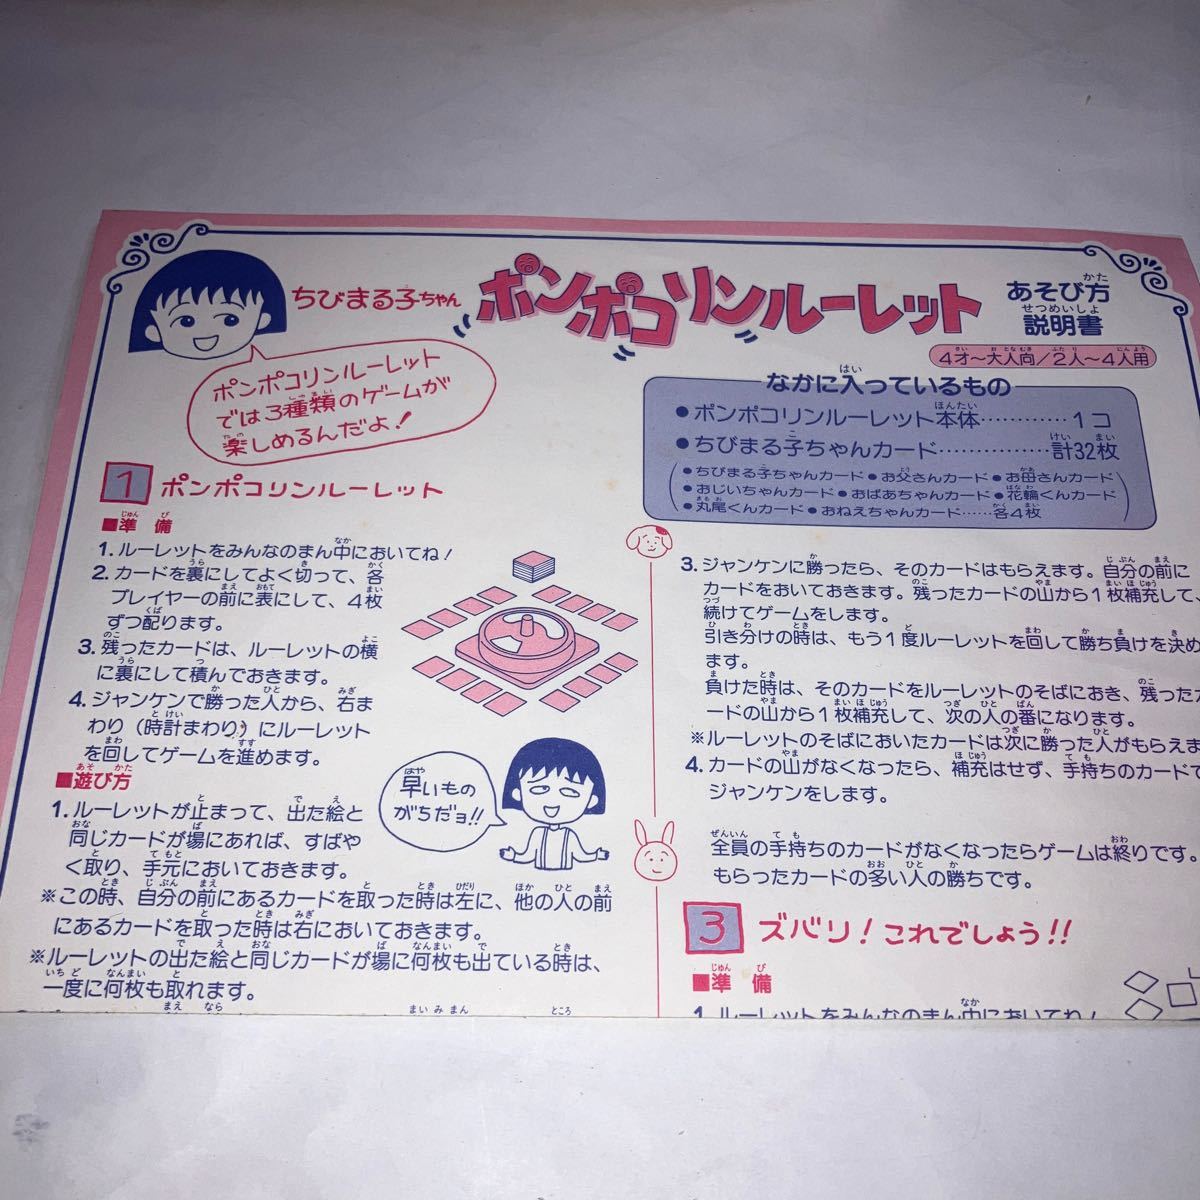 ちびまる子ちゃん
ポンポコリンルーレット
あそび方
説明書
4才〜大人向/2人〜4人用
ポンポコリンルーレット
では3種類のゲームが
楽しめるんだよ!
なかに入っているもの
●ポンポコリンルーレット本体…………1コ
●ちびまる子ちゃんカード……………計32枚
●ちびまる子ちゃんカード●お父さんカード●お母さんカード
●おじいちゃんカード●おばあちゃんカード●花輪くんカード
●丸尾くんカード●おねえちゃんカード……各4枚
1 ポンポコリンルーレット
■準備
1. ルーレットをみんなのまん中においてね!
2. カードを裏にしてよく切って、各
プレイヤーの前に表にして、4枚
ずつ配ります。
3. 残ったカードは、ルーレットの横
に裏にして積んでおきます。
4. ジャンケンで勝った人から、右ま
わり(時計まわり)にルーレット
を回してゲームを進めます。
■遊び方
1. ルーレットが止まって、出た絵と
同じカードが場にあれば、すばや
く取り、手元においておきます。
※この時、自分の前にあるカードを取った時は左に、他の人の前
にあるカードを取った時は右においておきます。
※ルーレットの出た絵と同じカードが場に何枚も出ている時は、
一度に何枚も取れます。
早いもの
がちだョ!!
3. ジャンケンに勝ったら、そのカードはもらえます。自分の前に
カードをおいておきます。残ったカードの山から1枚補充して、
続けてゲームをします。
引き分けの時は、もう1度ルーレットを回して勝ち負けを決め
ます。
負けた時は、そのカードをルーレットのそばにおき、残ったカ
ードの山から1枚補充して、次の人の番になります。
※ルーレットのそばにおいたカードは次に勝った人がもらえま
4. カードの山がなくなったら、補充はせず、手持ちのカードで
ジャンケンをします。
全員の手持ちのカードがなくなったらゲームは終りです。
もらったカードの多い人の勝ちです。
3 ズバリ!これでしょう!!
■準備
1. ルーレットをみんなのまん中においてね!